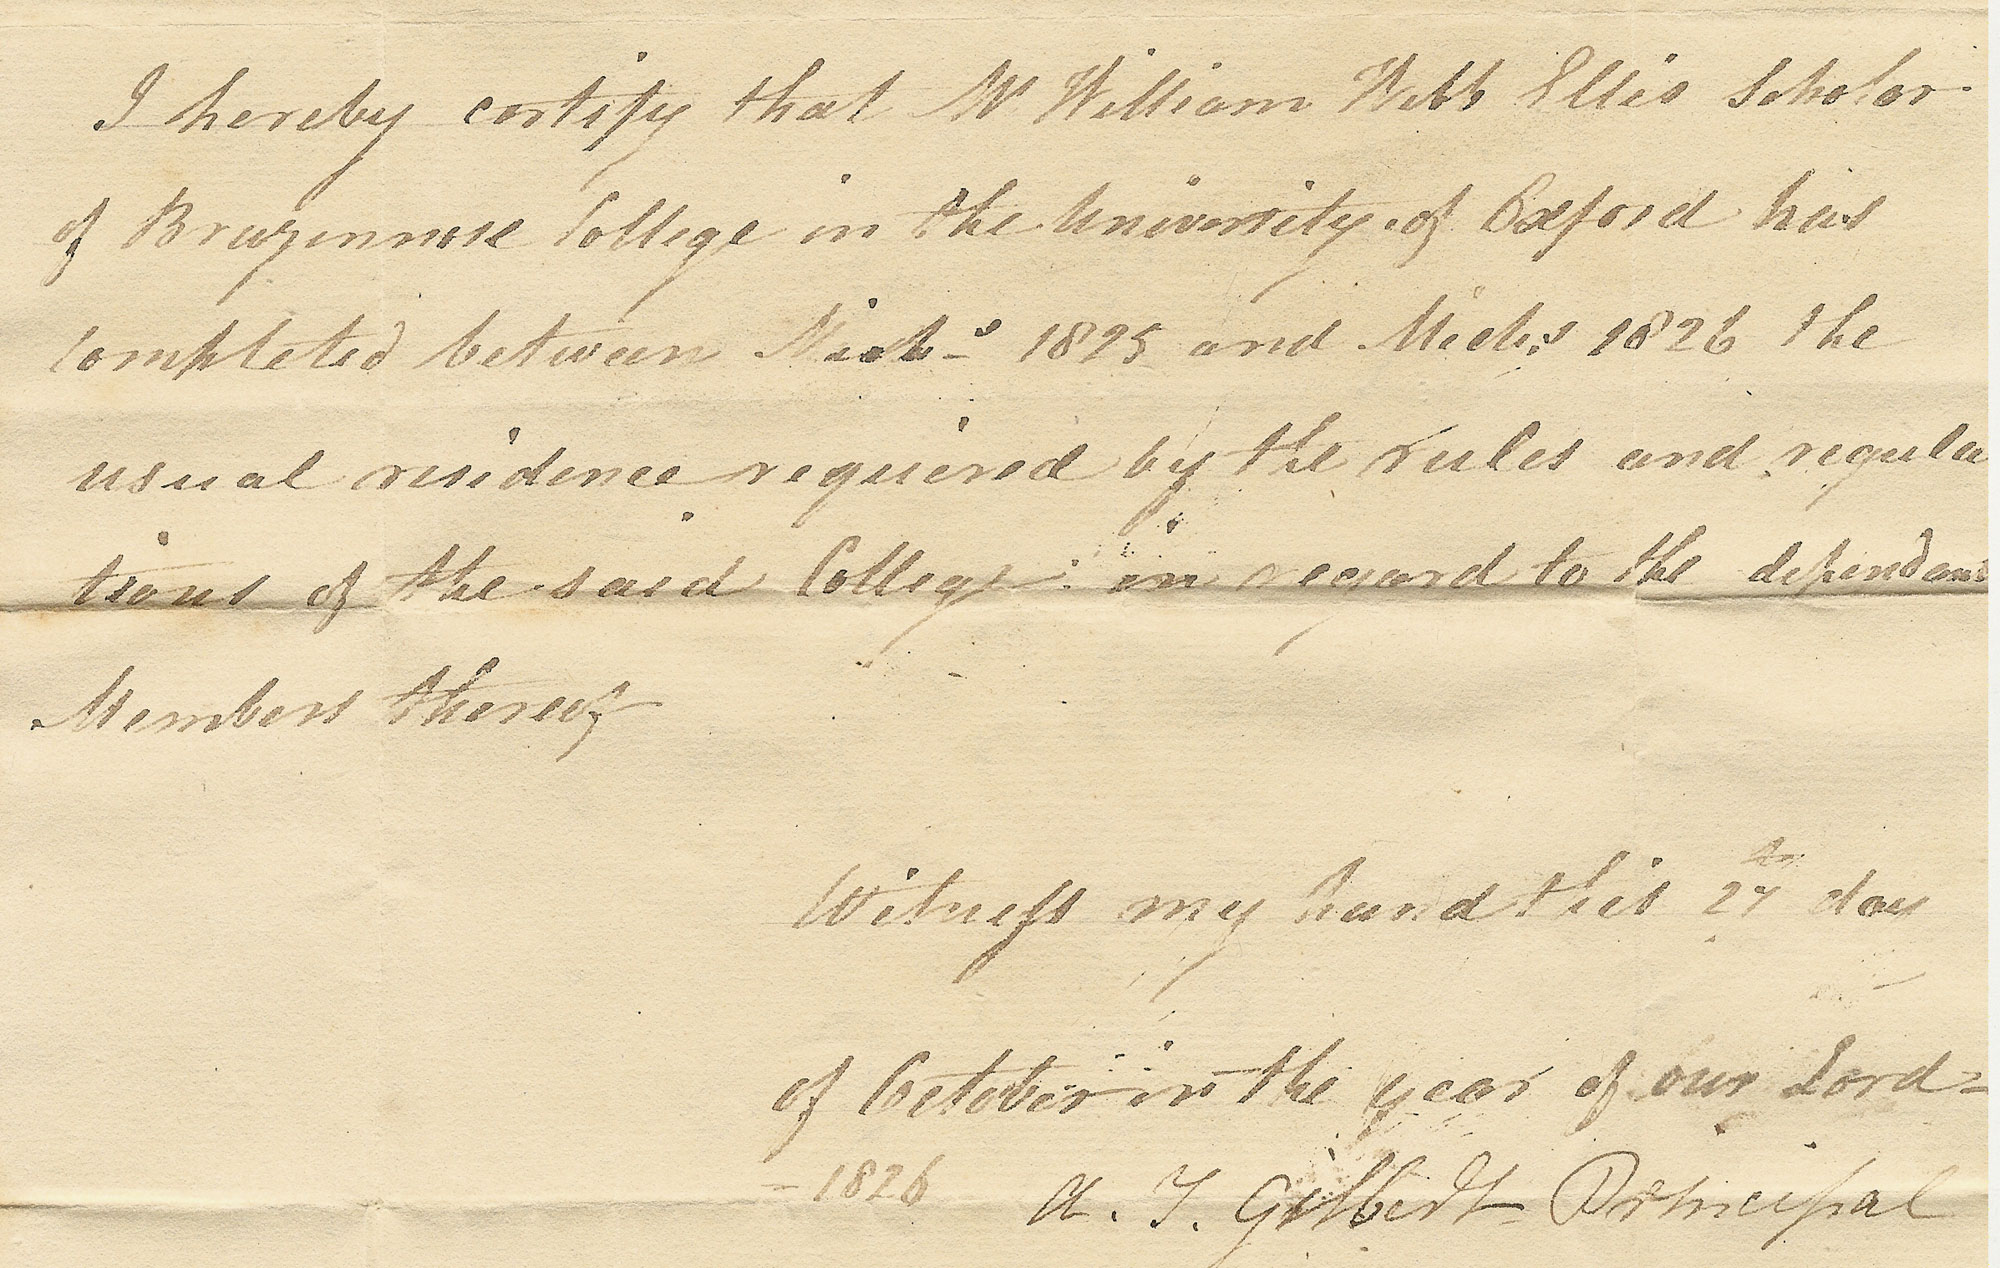 I hereby certify that Mr William Webb Ellis Scholar
of Brazennose College in the University of Oxford has
completed between Michs 1825 and Michs 1826 the
usual residence requiered by the rules and regula
tions of the said College in regard to the dependant
Members thereof
Witness my hand this 27th day
of October in the year of our Lord
1826 A. T. Gilbert Principal